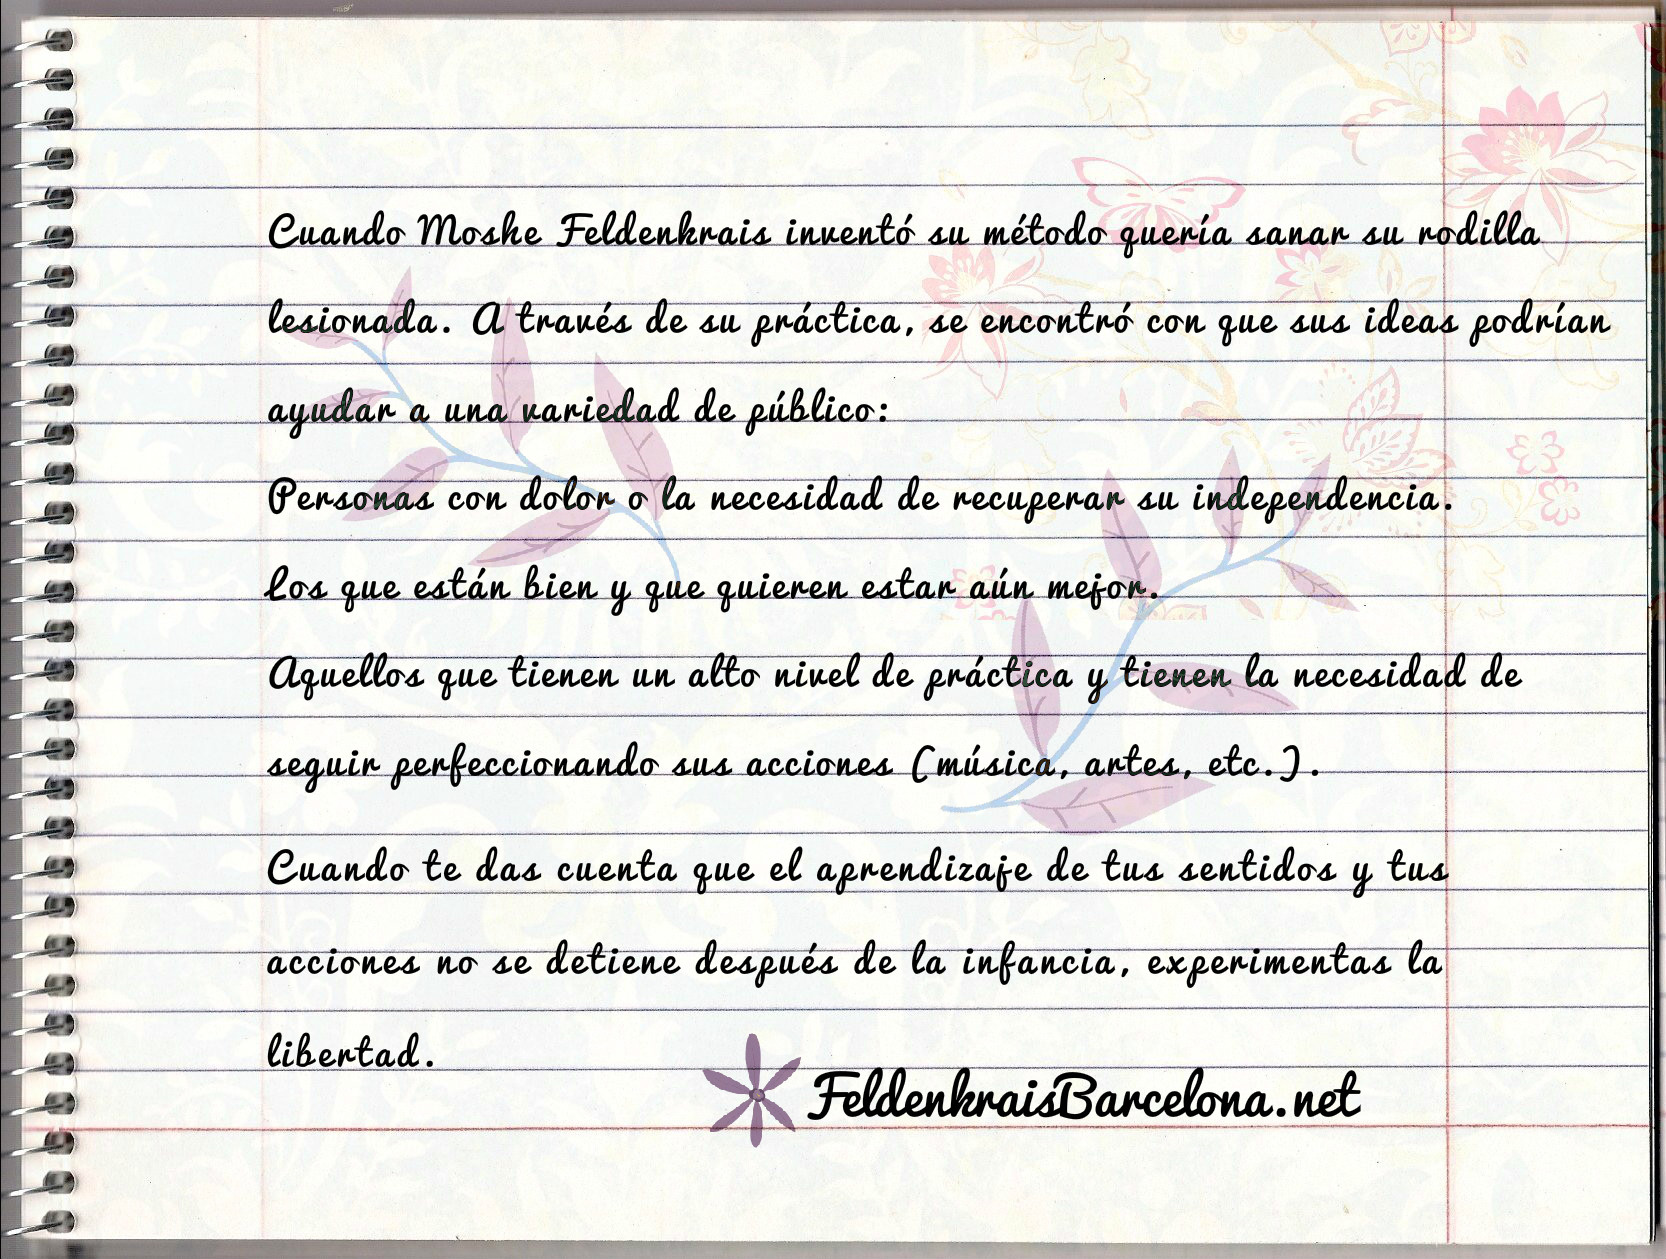 Cuando Moshe Feldenkrais inventó su método quería sanar su rodilla
lesionada. A través de su práctica, se encontró con que sus ideas podrían
ayudar a una variedad de público:
Personas con dolor o la necesidad de recuperar su independencia.
Los que están bien y que quieren estar aún mejor.
Aquellos que tienen un alto nivel de práctica y tienen la necesidad de
seguir perfeccionando sus acciones (música, artes, etc.).
Cuando te das cuenta que el aprendizaje de tus sentidos y tus
acciones no se detiene después de la infancia, experimentas la
libertad.
FeldenkraisBarcelona.net